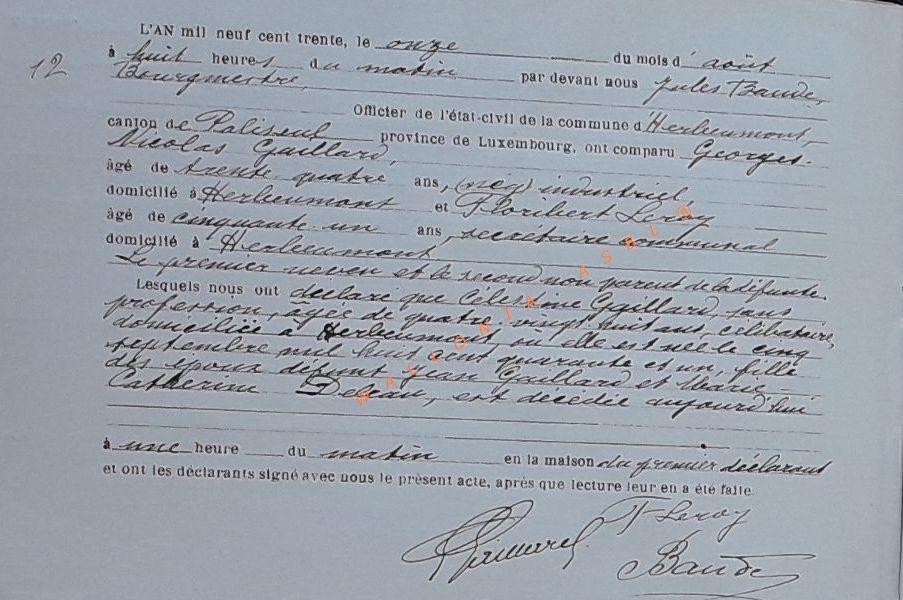 12
L'AN mil neuf cent trente, le onze du mois d'août
à huit heures du matin par devant nous Jules Baude,
Bourgmestre,
Officier de l'état-civil de la commune d'Herbeumont,
canton de Paliseul province de Luxembourg, ont comparu Georges-
Nicolas Gaillard,
âgé de trente quatre ans, (nég) industriel,
domicilié à Herbeumont et Floribert Leroy
âgé de cinquante-un ans, secrétaire communal
domicilié à Herbeumont.
Le premier neveu et le second non parent de la défunte.
Lesquels nous ont déclaré que Célestine Gaillard, sans
profession, âgée de quatre-vingt huit ans, célibataire,
domiciliée à Herbeumont, où elle est née le cinq
septembre mil huit cent quarante et un, fille
des époux défunt Jean Gaillard et Marie-
Catherine, est décédée aujourd'hui
à une heure du matin en la maison du premier déclarant
et ont les déclarants signé avec nous le présent acte, après que lecture leur en a été faite
Gaillard. F Leroy
Baude
WALLONIA ASBL ©